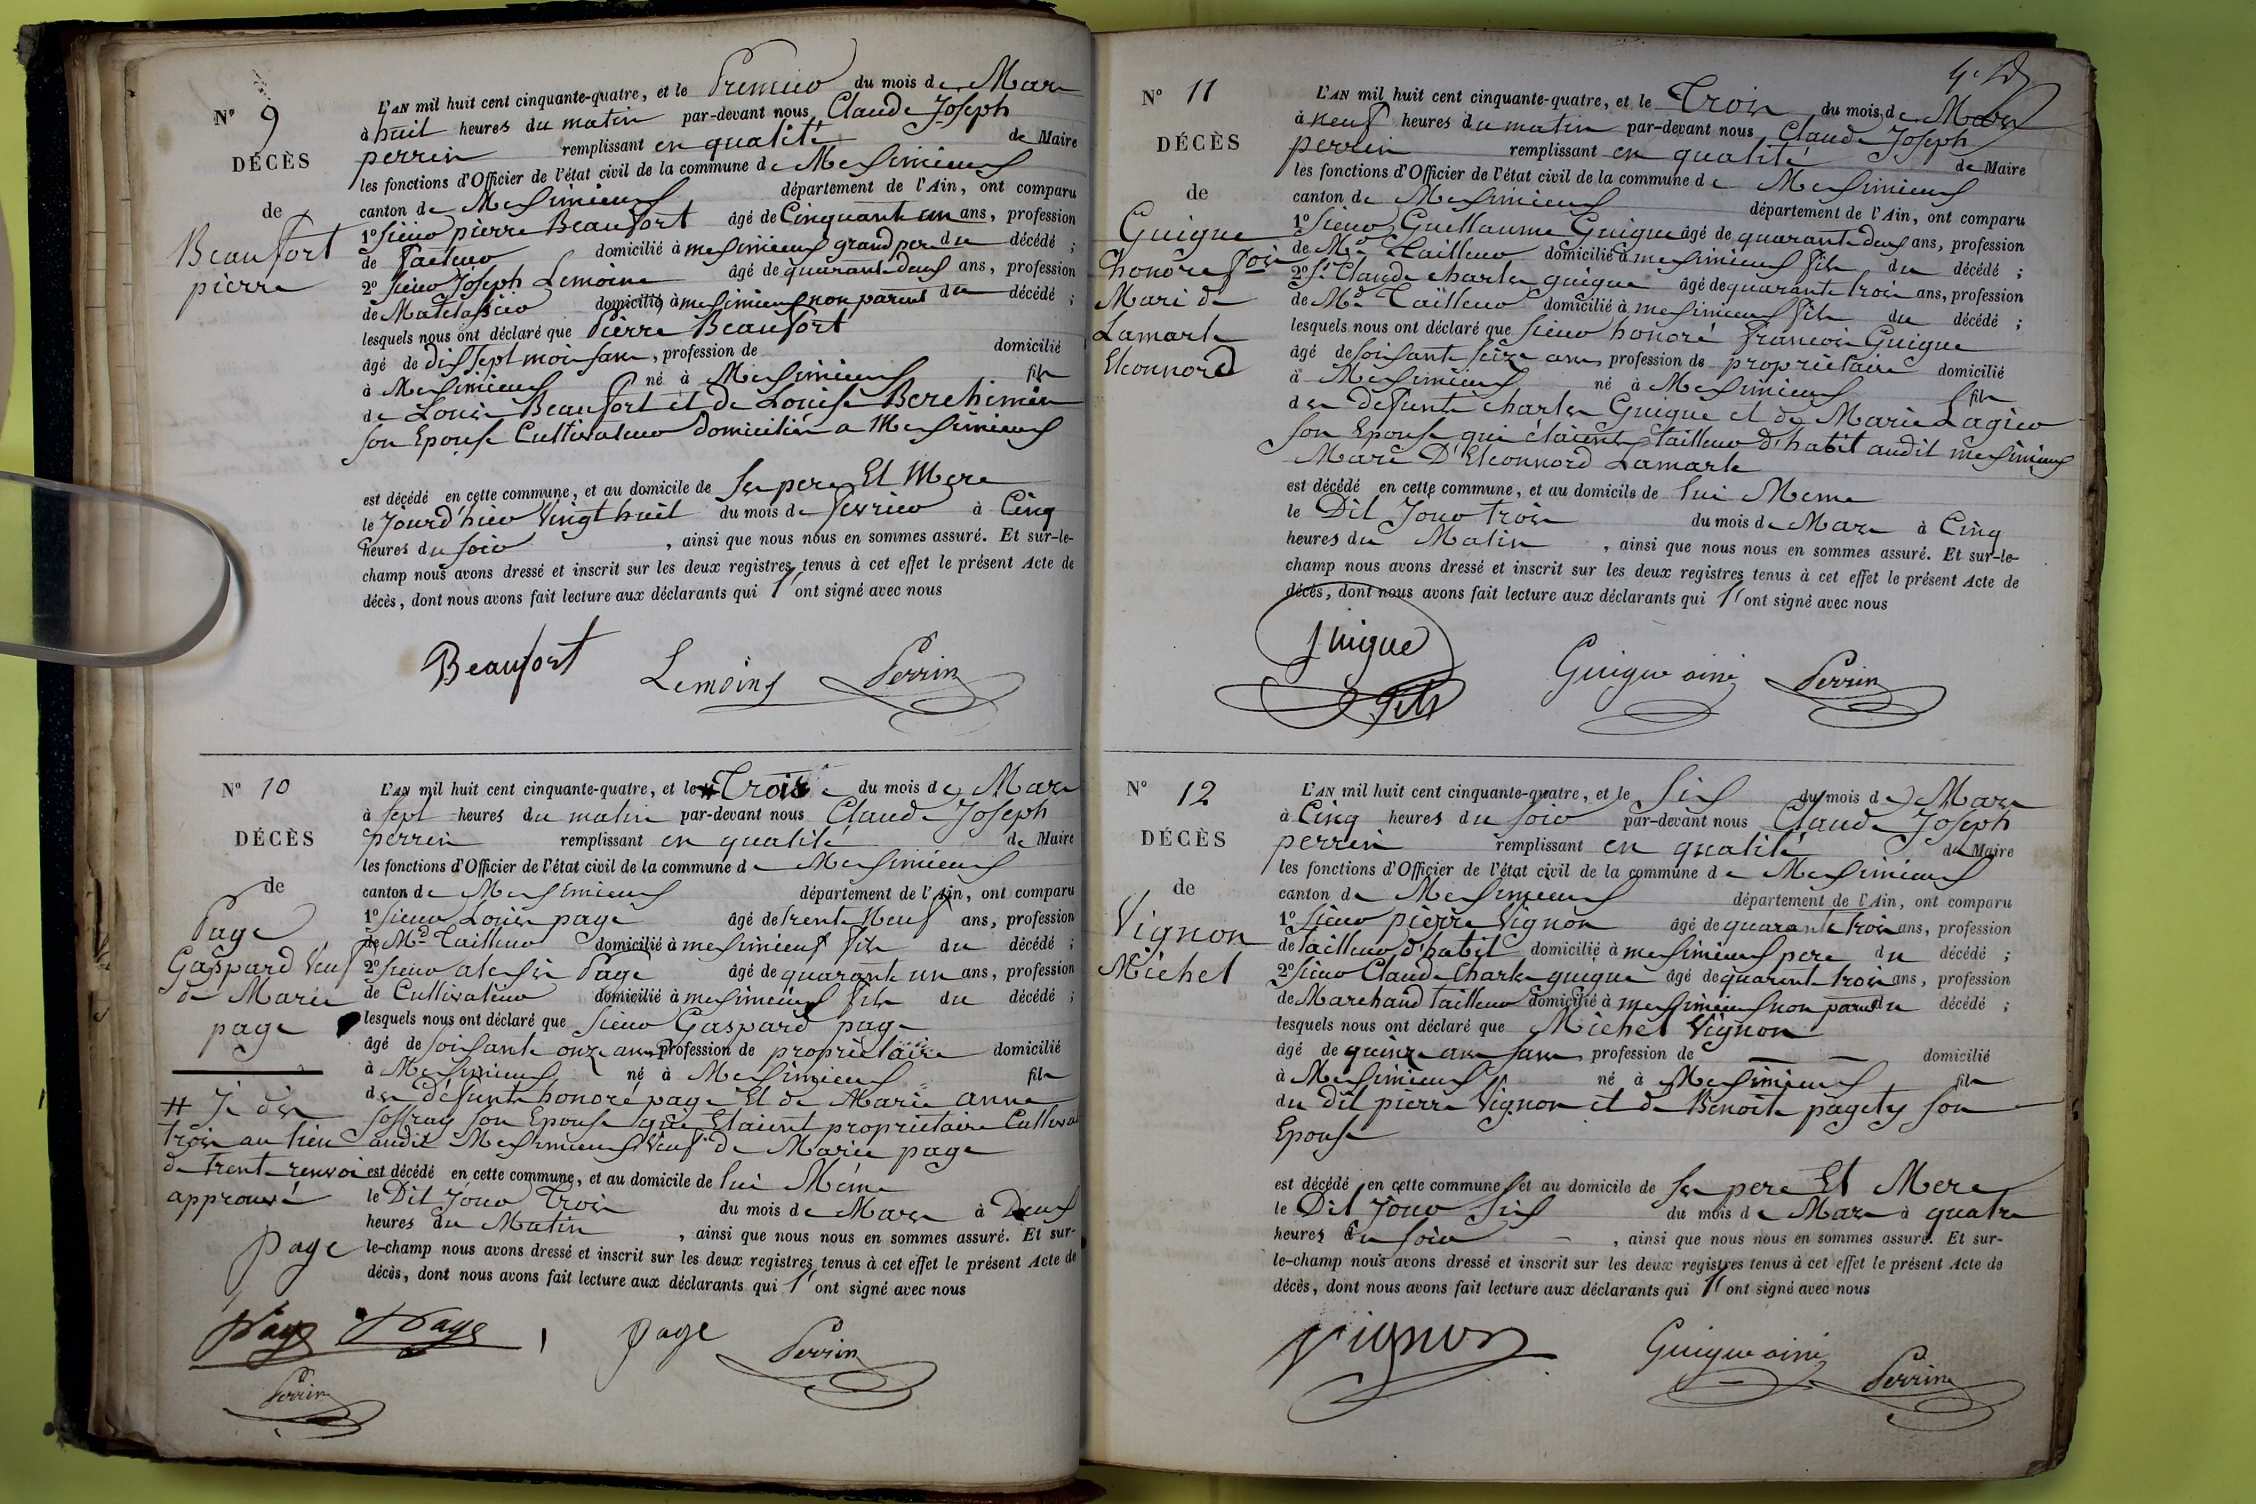 N° 9
DÉCÈS
de
Beaufort
pierre
L'AN mil huit cent cinquante-quatre, et le Premier du mois de Mars
à huit heures du matin par-devant nous Claude Joseph
perrin remplissant en qualité de Maire
les fonctions d'Officier de l'état civil de la commune de Meximieux
canton de Meximieux département de l'Ain, ont comparu
1° sieur pierre Beaufort âgé de Cinquante un ans, profession
de facteur domicilié à meximieux grand pere du décédé ;
2° sieur Joseph Lemoine âgé de quarante deux ans, profession
de Matelassier domicilié à meximieux non parent du décédé ;
lesquels nous ont déclaré que Pierre Beaufort
âgé de dix sept mois sans, profession de domicilié
à Meximieux né à Meximieux fils
de Louis Beaufort et de Louise Berchimin
son Epouse Cultivateur domiciliés a Meximieux
est décédé en cette commune, et au domicile de ses pere Et Mere
le Jourd'hier vingt huit du mois de fevrier à Cinq
heures du soir , ainsi que nous nous en sommes assuré. Et sur-le-
champ nous avons dressé et inscrit sur les deux registres tenus à cet effet le présent Acte de
décès, dont nous avons fait lecture aux déclarants qui l'ont signé avec nous
Beaufort Lemoine Perrin
N° 10
DÉCÈS
de
Page
Gaspard Veuf
de Marie
page
# Je dis
trois au lieu
de trente renvoi
approuvé
page
L'AN mil huit cent cinquante-quatre, et le # Trois du mois de Mars
à sept heures du matin par-devant nous Claude Joseph
perrin remplissant en qualité de Maire
les fonctions d'Officier de l'état civil de la commune de Meximieux
canton de Meximieux département de l'Ain, ont comparu
1° sieur Louis page âgé de trente Neuf ans, profession
de Md Tailleur domicilié à meximieux fils du décédé ;
2° sieur alexis Page âgé de quarante un ans, profession
de Cultivateur domicilié à meximieux fils du décédé ;
lesquels nous ont déclaré que sieur Gaspard page
âgé de soixante onze ans profession de propriétaire domicilié
à Meximieux né à Meximieux fils
des défunts honoré page Et de Marie anne
Joffray son Epouse qui Etaient propriétaire Cultiva
audit Meximieux Veuf de Marie page
est décédé en cette commune, et au domicile de lui Même
le Dit Jour Trois du mois de Mars à Deux
heures du Matin , ainsi que nous nous en sommes assuré. Et sur-
le-champ nous avons dressé et inscrit sur les deux registres tenus à cet effet le présent Acte de
décès, dont nous avons fait lecture aux déclarants qui l'ont signé avec nous
Page Page page Perrin
Perrin
N° 11
DÉCÈS
de
Guigue
honoré fois
Mari de
Lamarle
Eleonnord
L'AN mil huit cent cinquante-quatre, et le Trois du mois de Mars
à neuf heures du matin par-devant nous Claude Joseph
perrin remplissant en qualité de Maire
les fonctions d'Officier de l'état civil de la commune de Meximieux
canton de Meximieux département de l'Ain, ont comparu
1° sieur Guillaume Guigue âgé de quarante deux ans, profession
de Md Tailleur domicilié à meximieux fils du décédé ;
2° Sr Claude charles guigue âgé de quarante trois ans, profession
de Md Tailleur domicilié à meximieux fils du décédé ;
lesquels nous ont déclaré que sieur honoré francois Guigue
âgé de soixante seize ans profession de propriétaire domicilié
à Meximieux né à Meximieux fils
des defunts charles Guigue et de Marie Lagier
son Epouse qui étaient tailleur d'habit audit meximieux
Mari D'Eleonnord Lamarle
est décédé en cette commune, et au domicile de lui Meme
le Dit Jour trois du mois de Mars à Cinq
heures du Matin , ainsi que nous nous en sommes assuré. Et sur-le-
champ nous avons dressé et inscrit sur les deux registres tenus à cet effet le présent Acte de
décès, dont nous avons fait lecture aux déclarants qui l'ont signé avec nous
guigue fils Guigue ainé Perrin
N° 12
DÉCÈS
de
Vignon
Michel
L'AN mil huit cent cinquante-quatre, et le Six du mois de Mars
à Cinq heures du soir par-devant nous Claude Joseph
perrin remplissant en qualité de Maire
les fonctions d'Officier de l'état civil de la commune de Meximieux
canton de Meximieux département de l'Ain, ont comparu
1° sieur pierre Vignon âgé de quarante trois ans, profession
de tailleur d'habit domicilié à meximieux pere du décédé ;
2° sieur Claude Charles guigue âgé de quarante trois ans, profession
de Marchand tailleur domicilié à meximieux non parent du décédé ;
lesquels nous ont déclaré que Michel Vignon
âgé de quinze ans sans profession de domicilié
à Meximieux né à Meximieux fils
du dit pierre Vignon et de Benoite pagety son
Epouse
est décédé en cette commune, et au domicile de ses pere Et Mere
le Dit Jour six du mois de Mars à quatre
heures du soir , ainsi que nous nous en sommes assuré. Et sur-
le-champ nous avons dressé et inscrit sur les deux registres tenus à cet effet le présent Acte de
décès, dont nous avons fait lecture aux déclarants qui l'ont signé avec nous
Vignon Guigue ainé Perrin